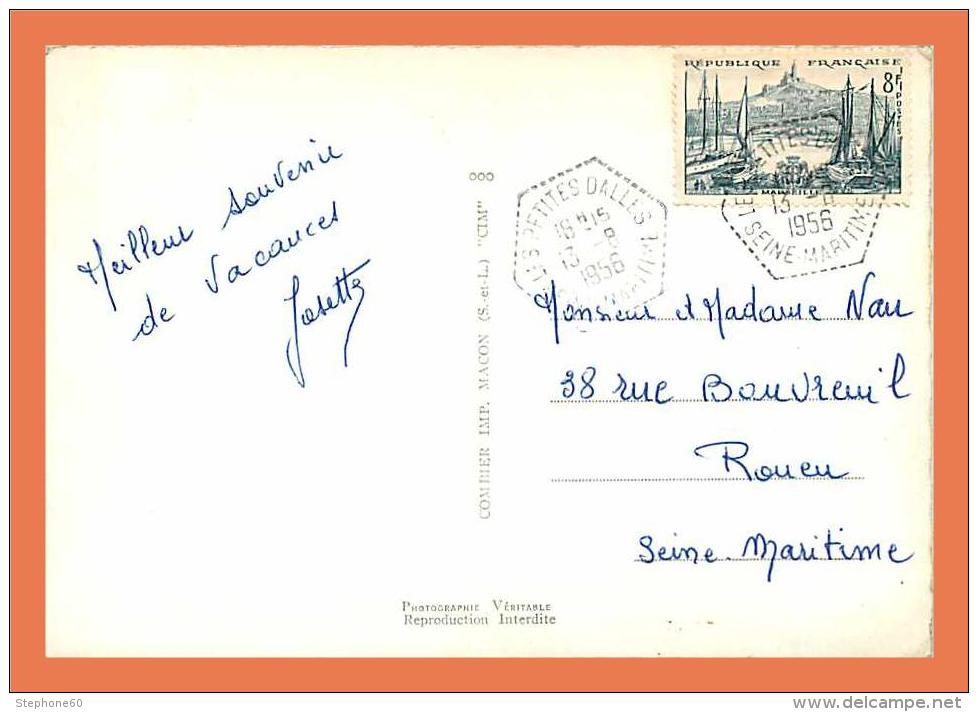 RÉPUBLIQUE FRANÇAISE
8F
POSTES
MARSEILLE
LES PETITES DALLES
18H15
13 -8
1956
SEINE-MARITIME
13 -8
1956
SEINE-MARITIME
Meilleur souvenir
de vacances
Josette
COMBIER IMP. MACON (S.-et-L.) "CIM"
Monsieur et Madame Nau
38 rue Bouvreuil
Rouen
Seine-Maritime
PHOTOGRAPHIE VÉRITABLE
Reproduction Interdite
Stephone60
www.delcampe.net